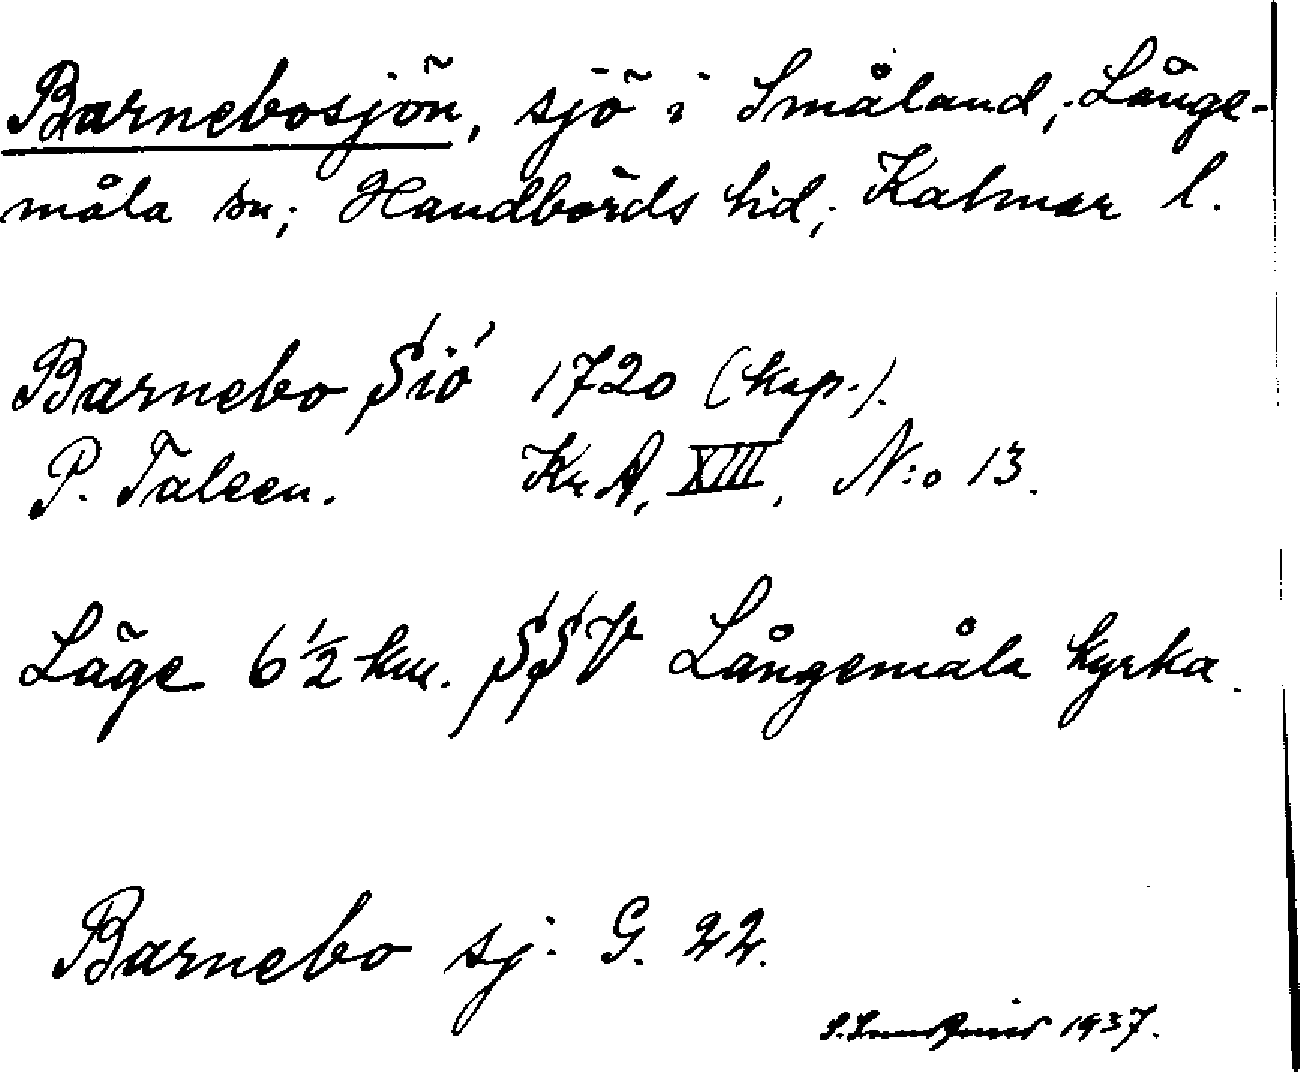 Barnebosjön, sjö i Småland, Långe-
måla sn; Handbörds hd; Kalmar l.
Barnebo Siö 1720 (kap.).
P. Taleen. Kr A, XIII, N:o 13.
Läge 6 1/2 km. SSV Långemåla kyrka.
Barnebo sj. G. 22.
1937.